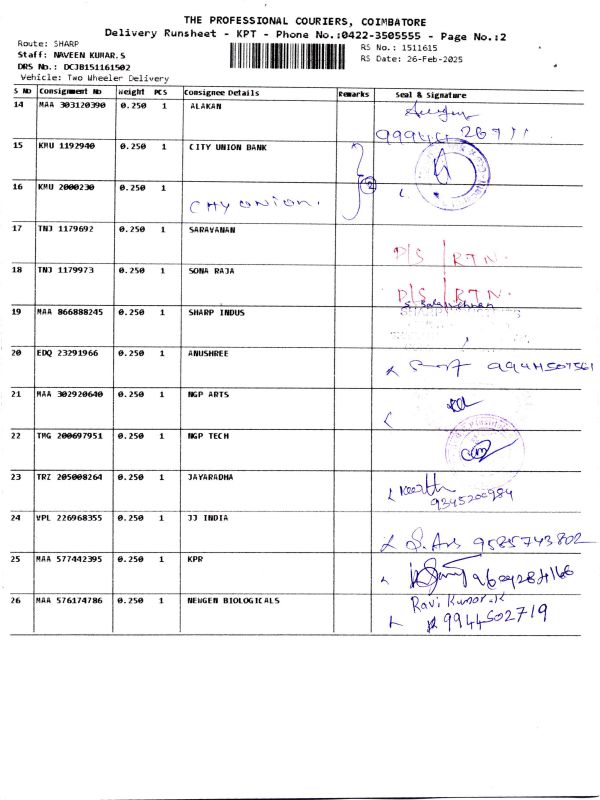 THE PROFESSIONAL COURIERS, COIMBATORE
Delivery Runsheet - KPT - Phone No.:0422-3505555 - Page No.:2
Route: SHARP
Staff: NAVEEN KUMAR.S
DRS No.: DCJB151161502
Vehicle: Two Wheeler Delivery
RS No.: 1511615
RS Date: 26-Feb-2025
S No Consignment No Weight PCS Consignee Details Remarks Seal & Signature
14 MAA 303120390 0.250 1 ALAKAN
15 KMU 1192940 0.250 1 CITY UNION BANK
16 KMU 2000230 0.250 1 CITY UNION. 2
17 TNJ 1179692 0.250 1 SARAVANAN D/S RTN.
18 TNJ 1179973 0.250 1 SONA RAJA D/S RTN.
19 MAA 866888245 0.250 1 SHARP INDUS
20 EDQ 23291966 0.250 1 ANUSHREE 9944507561
21 MAA 302920640 0.250 1 NGP ARTS
22 TMG 200697951 0.250 1 NGP TECH
23 TRZ 205008264 0.250 1 JAYARADHA 9345200984
24 VPL 226968355 0.250 1 JJ INDIA 9585743802
25 MAA 577442395 0.250 1 KPR
26 MAA 576174786 0.250 1 NEWGEN BIOLOGICALS Ravi Kumar.K
9944502719